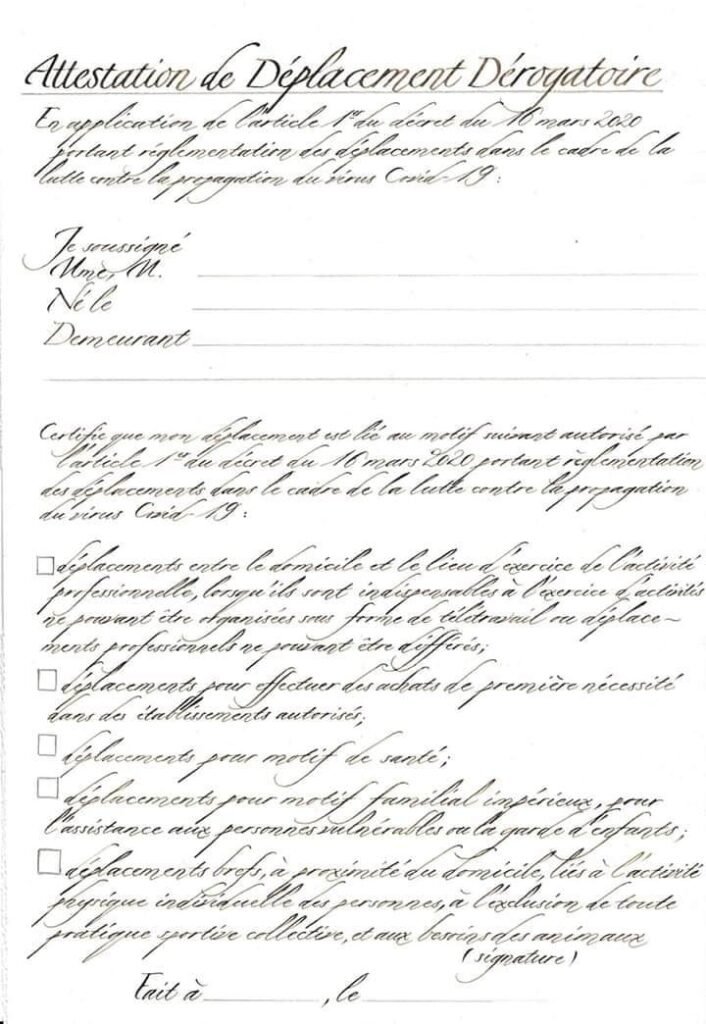 Attestation de Déplacement Dérogatoire
En application de l'article 1er du décret du 16 mars 2020
portant réglementation des déplacements dans le cadre de la
lutte contre la propagation du virus Covid-19 :
Je soussigné
Mme, M.
Né le
Demeurant
Certifie que mon déplacement est lié au motif suivant autorisé par
l'article 1er du décret du 16 mars 2020 portant règlementation
des déplacements dans le cadre de la lutte contre la propagation
du virus Covid-19 :
déplacements entre le domicile et le lieu d'exercice de l'activité
professionnelle, lorsqu'ils sont indispensables à l'exercice d'activités
ne pouvant être organisées sous forme de télétravail ou déplace-
ments professionnels ne pouvant être différés;
déplacements pour effectuer des achats de première nécessité
dans des établissements autorisés;
déplacements pour motif de santé;
déplacements pour motif familial impérieux, pour
l'assistance aux personnes vulnérables ou la garde d'enfants;
déplacements brefs, à proximité du domicile, liés à l'activité
physique individuelle des personnes, à l'exclusion de toute
pratique sportive collective, et aux besoins des animaux
(signature)
Fait à , le